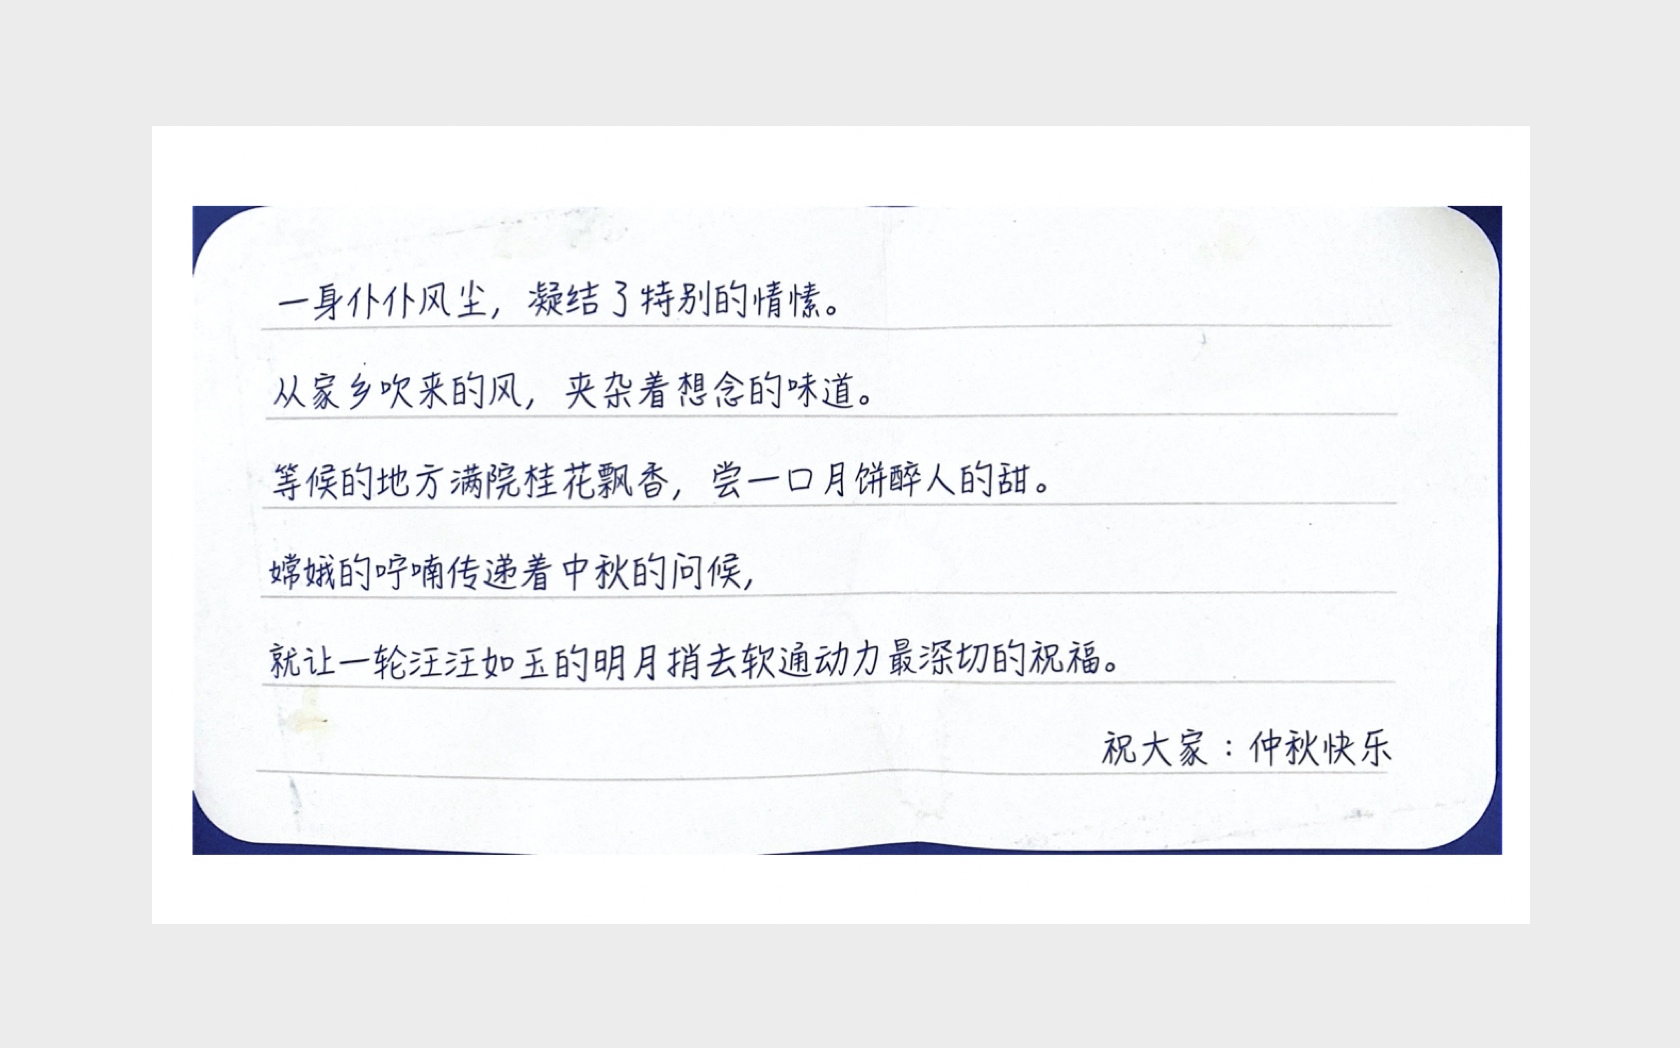 一身仆仆风尘，凝结了特别的情愫。
从家乡吹来的风，夹杂着想念的味道。
等候的地方满院桂花飘香，尝一口月饼醉人的甜。
嫦娥的咛喃传递着中秋的问候，
就让一轮汪汪如玉的明月捎去软通动力最深切的祝福。
祝大家：仲秋快乐